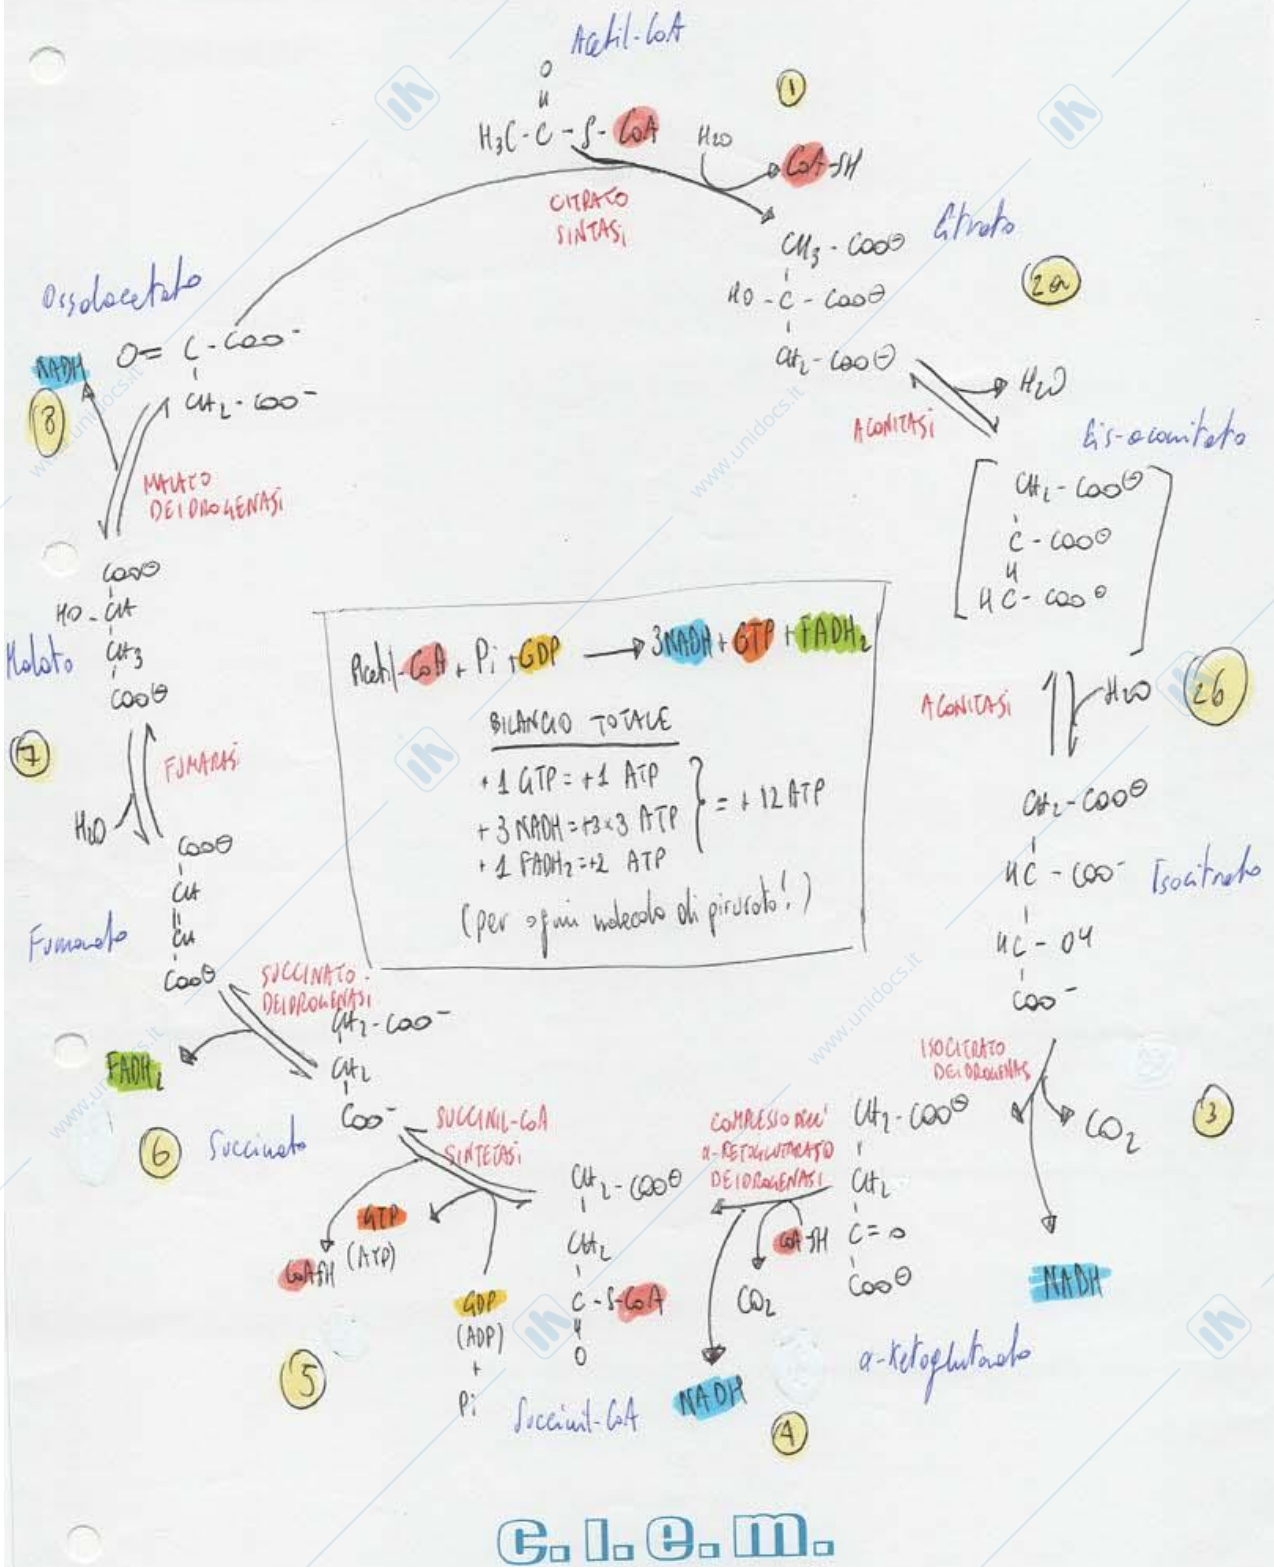 Acetil-CoA
O
||
H3C - C - S - CoA
H2O
1
CoA-SH
CITRATO
SINTASI
CH3 - COO⊖
Citrato
HO - C - COO⊖
CH2 - COO⊖
2a
H2O
ACONITASI
Cis-aconitato
CH2 - COO⊖
C - COO⊖
||
HC - COO⊖
ACONITASI
H2O
2b
CH2 - COO⊖
HC - COO-
Isocitrato
HC - OH
COO-
ISOCITRATO
DEIDROGENAS
CO2
3
NADH
CH2 - COO⊖
CH2
C = O
COO⊖
α-Ketoglutarato
COMPLESSO DELL'
α-KETOGLUTARATO
DEIDROGENASI
CoA-SH
CO2
NADH
4
CH2 - COO⊖
CH2
C - S - CoA
||
O
Succinil-CoA
SUCCINIL-CoA
SINTETASI
GTP
(ATP)
CoA-SH
GDP
(ADP)
+
Pi
5
CH2 - COO-
CH2
COO-
Succinato
6
SUCCINATO-
DEIDROGENASI
FADH2
COO⊖
CH
||
CH
COO⊖
Fumarato
FUMARASI
H2O
7
COO⊖
HO - CH
CH3
COO⊖
Malato
MALATO
DEIDROGENASI
8
NADH
Ossalacetato
O = C - COO-
CH2 - COO-
Acetil-CoA + Pi + GDP → 3NADH + GTP + FADH2
BILANCIO TOTALE
+ 1 GTP = +1 ATP
+ 3 NADH = +3×3 ATP
+ 1 FADH2 = +2 ATP
} = + 12 ATP
(per ogni molecola di piruvato!)
www.unidocs.it
www.unidocs.it
www.unidocs.it
www.unidocs.it
C.I.e.m.